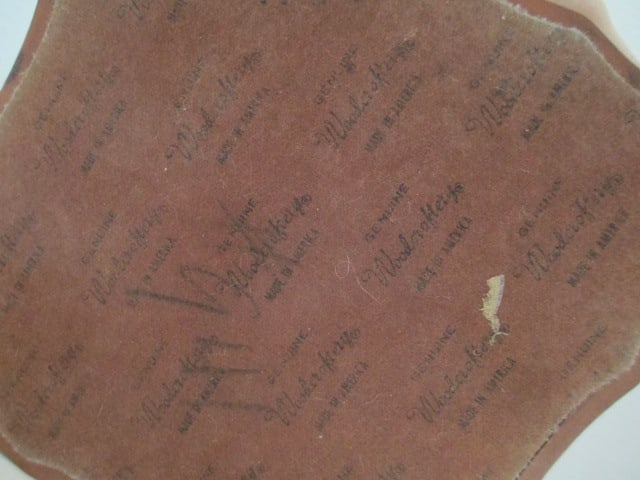 GENUINE
Woodcroftery
MADE IN AMERICA
GENUINE
Woodcroftery
MADE IN AMERICA
GENUINE
Woodcroftery
MADE IN AMERICA
GENUINE
Woodcroftery
MADE IN AMERICA
GENUINE
Woodcroftery
IN AMERICA
GENUINE
Woodcroftery
MADE IN AMERICA
GENUINE
Woodcroftery
MADE IN AMERICA
GENUINE
Woodcroftery
MADE IN AMERICA
GENUINE
Woodcroftery
MADE IN AMERICA
GENUINE
Woodcroftery
MADE IN AMERICA
GENUINE
Woodcroftery
MADE IN AMERICA
GENUINE